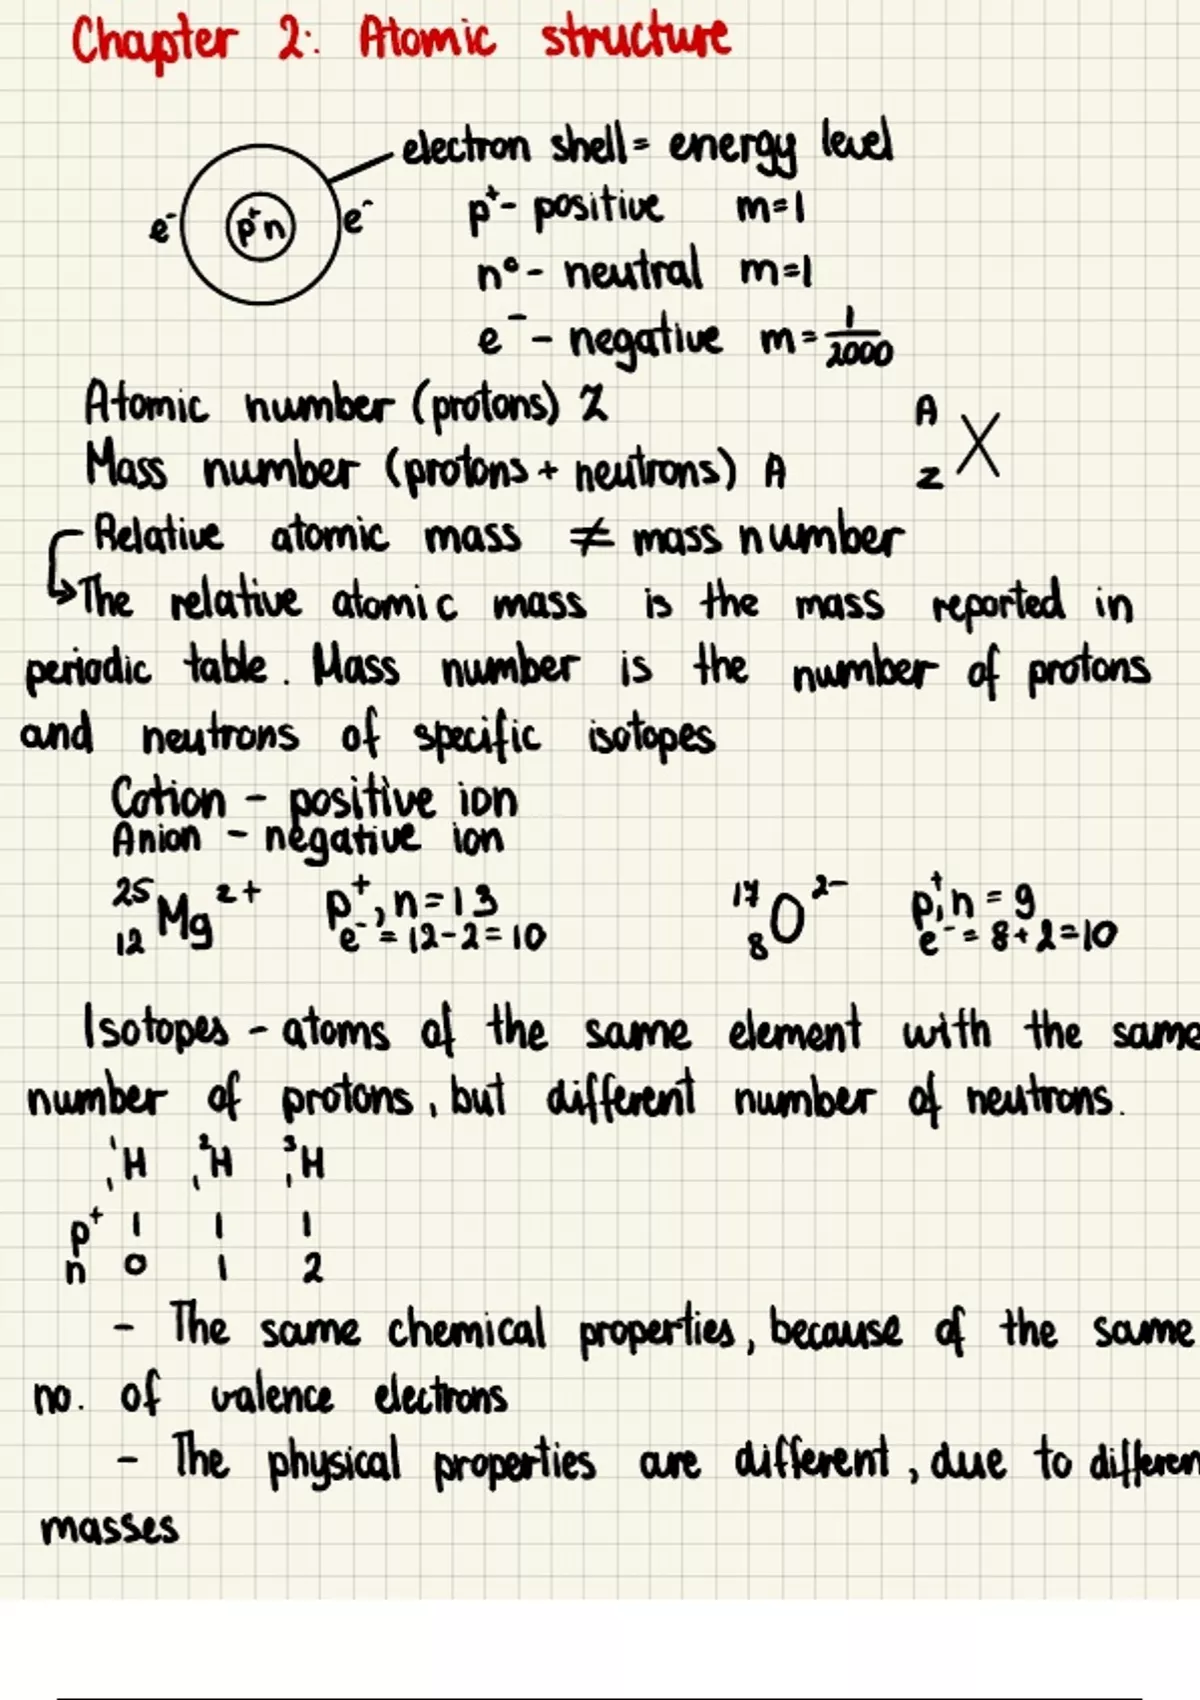 Chapter 2: Atomic structure
electron shell = energy level
e⁻ p⁺n e⁻
p⁺ - positive m=1
n⁰ - neutral m=1
e⁻ - negative m = 1/2000
Atomic number (protons) Z
Mass number (protons + neutrons) A
A
Z X
Relative atomic mass ≠ mass number
↳ The relative atomic mass is the mass reported in
periodic table. Mass number is the number of protons
and neutrons of specific isotopes
Cation - positive ion
Anion - negative ion
²⁵₁₂Mg²⁺ p⁺, n = 13 ¹⁷₈O²⁻ p⁺, n = 9
e⁻ = 12-2=10 e⁻ = 8+2=10
Isotopes - atoms of the same element with the same
number of protons, but different number of neutrons.
¹₁H ²₁H ³₁H
p⁺ 1 1 1
n 0 1 2
- The same chemical properties, because of the same
no. of valence electrons
- The physical properties are different, due to differen
masses